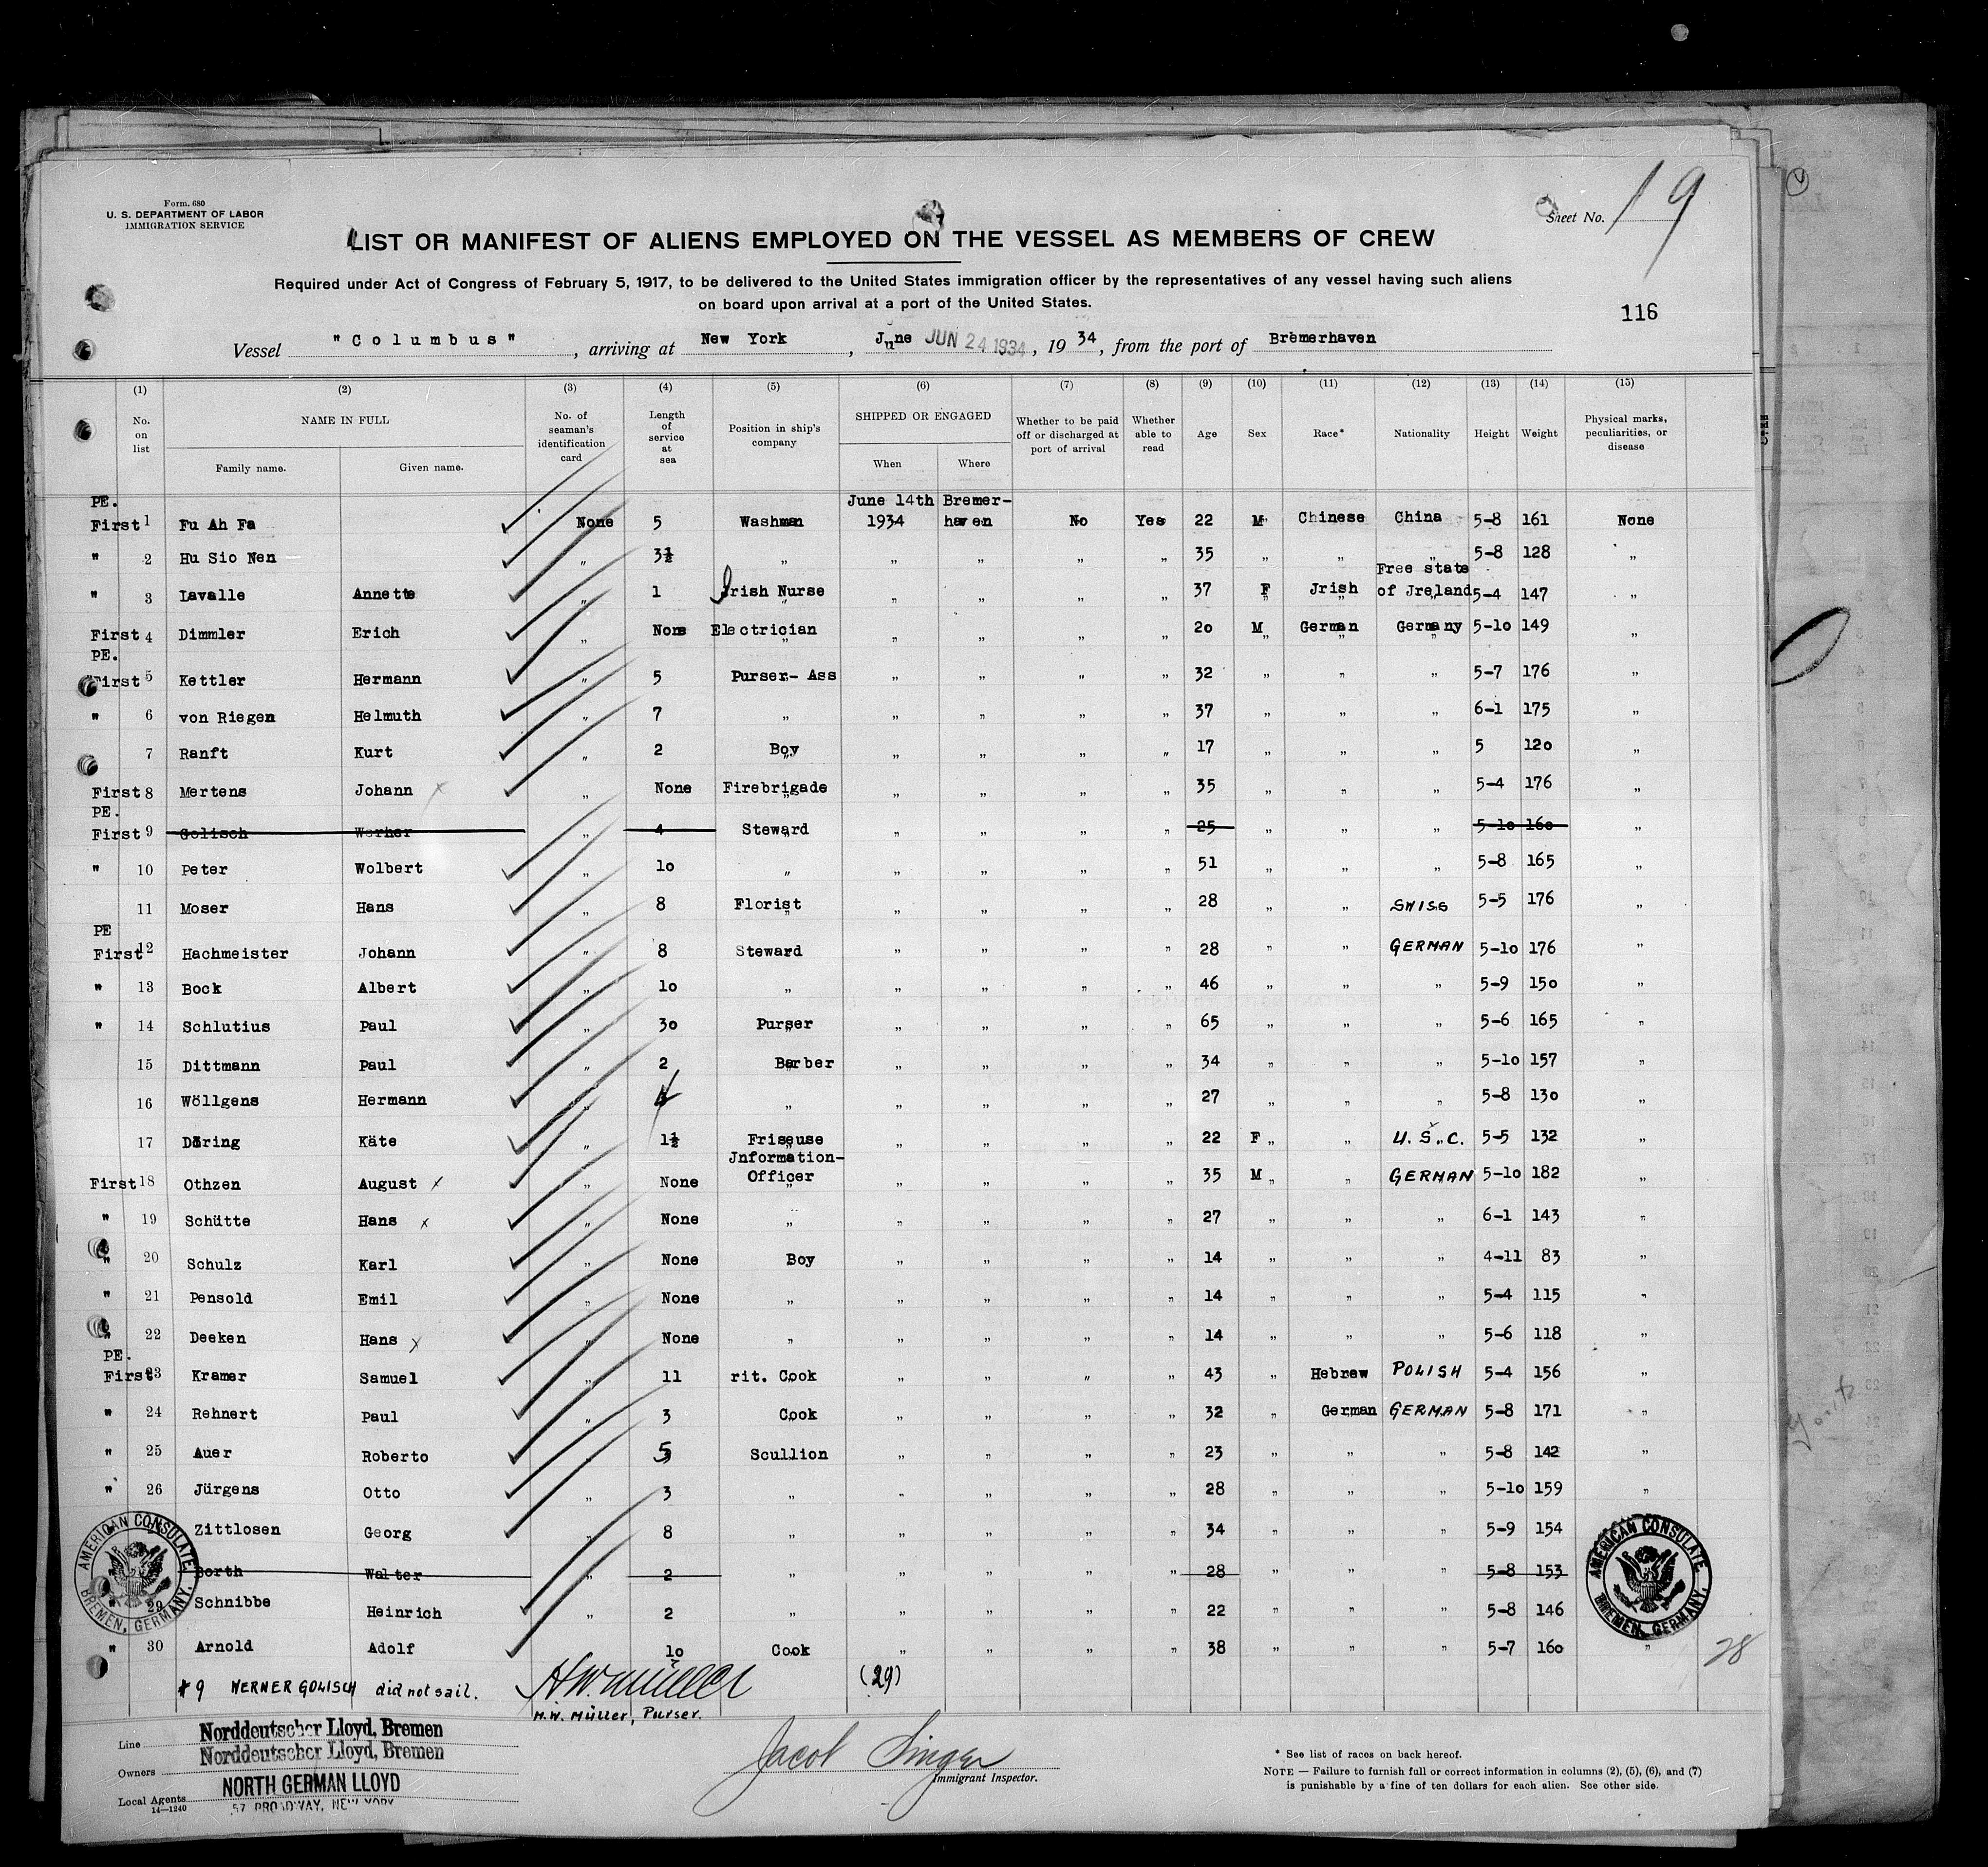 Form. 680
U. S. DEPARTMENT OF LABOR
IMMIGRATION SERVICE
Sheet No. 19
LIST OR MANIFEST OF ALIENS EMPLOYED ON THE VESSEL AS MEMBERS OF CREW
Required under Act of Congress of February 5, 1917, to be delivered to the United States immigration officer by the representatives of any vessel having such aliens
on board upon arrival at a port of the United States.
116
Vessel "Columbus", arriving at New York, June JUN 24 1934, 1934, from the port of Bremerhaven
(1) (2) (3) (4) (5) (6) (7) (8) (9) (10) (11) (12) (13) (14) (15)
No. on list NAME IN FULL Family name. Given name. No. of seaman's identification card Length of service at sea Position in ship's company SHIPPED OR ENGAGED When Where Whether to be paid off or discharged at port of arrival Whether able to read Age Sex Race* Nationality Height Weight Physical marks, peculiarities, or disease
PE. June 14th Bremer-
First 1 Fu Ah Fa None 5 Washman 1934 haven No Yes 22 M Chinese China 5-8 161 None
" 2 Hu Sio Nen " 3½ " " " " " 35 " " " 5-8 128 "
Free state
" 3 Lavalle Annette " 1 Irish Nurse " " " " 37 F Jrish of Jreland 5-4 147 "
First 4 Dimmler Erich " None Electrician " " " " 20 M German Germany 5-10 149 "
PE.
First 5 Kettler Hermann " 5 Purser-Ass " " " " 32 " " " 5-7 176 "
" 6 von Riegen Helmuth " 7 " " " " " 37 " " " 6-1 175 "
7 Ranft Kurt " 2 Boy " " " " 17 " " " 5 120 "
First 8 Mertens Johann x " None Firebrigade " " " " 35 " " " 5-4 176 "
PE.
First 9 Golisch Werner " 4 Steward " " " " 25 " " " 5-10 160 "
" 10 Peter Wolbert " 10 " " " " " 51 " " " 5-8 165 "
11 Moser Hans " 8 Florist " " " " 28 " " SWISS 5-5 176 "
PE
First 12 Hachmeister Johann " 8 Steward " " " " 28 " " GERMAN 5-10 176 "
" 13 Bock Albert " 10 " " " " " 46 " " " 5-9 150 "
" 14 Schlutius Paul " 30 Purser " " " " 65 " " " 5-6 165 "
15 Dittmann Paul " 2 Barber " " " " 34 " " " 5-10 157 "
16 Wöllgens Hermann " 4 " " " " " 27 " " " 5-8 130 "
17 Döring Käte " 1½ Friseuse " " " " 22 F " " U.S.C. 5-5 132 "
Jnformation-
First 18 Othzen August x " None Officer " " " " 35 M " " GERMAN 5-10 182 "
" 19 Schütte Hans x " None " " " " " 27 " " " 6-1 143 "
" 20 Schulz Karl " None Boy " " " " 14 " " " 4-11 83 "
" 21 Pensold Emil " None " " " " " 14 " " " 5-4 115 "
" 22 Deeken Hans x " None " " " " " 14 " " " 5-6 118 "
PE.
First 23 Kramer Samuel " 11 rit. Cook " " " " 43 " Hebrew POLISH 5-4 156 "
" 24 Rehnert Paul " 3 Cook " " " " 32 " German GERMAN 5-8 171 "
" 25 Auer Roberto " 5 Scullion " " " " 23 " " " 5-8 142 "
" 26 Jürgens Otto " 3 " " " " " 28 " " " 5-10 159 "
Zittlosen Georg " 8 " " " " " 34 " " " 5-9 154 "
Walter " 2 " " " " " 28 " " " 5-8 153
" 29 Schnibbe Heinrich " 2 " " " " " 22 " " " 5-8 146
" 30 Arnold Adolf 10 Cook " " " " 38 " " " 5-7 160 "
AMERICAN CONSULATE, BREMEN, GERMANY.
AMERICAN CONSULATE, BREMEN, GERMANY.
28
#9 WERNER GOLISCH did not sail. H.W. Müller (29)
H.W. Müller, Purser.
Line Norddeutscher Lloyd, Bremen
Owners Norddeutscher Lloyd, Bremen
Local Agents NORTH GERMAN LLOYD
57 BROADWAY, NEW YORK
14—1240
Jacob Singer
Immigrant Inspector.
* See list of races on back hereof.
NOTE — Failure to furnish full or correct information in columns (2), (5), (6), and (7)
is punishable by a fine of ten dollars for each alien. See other side.